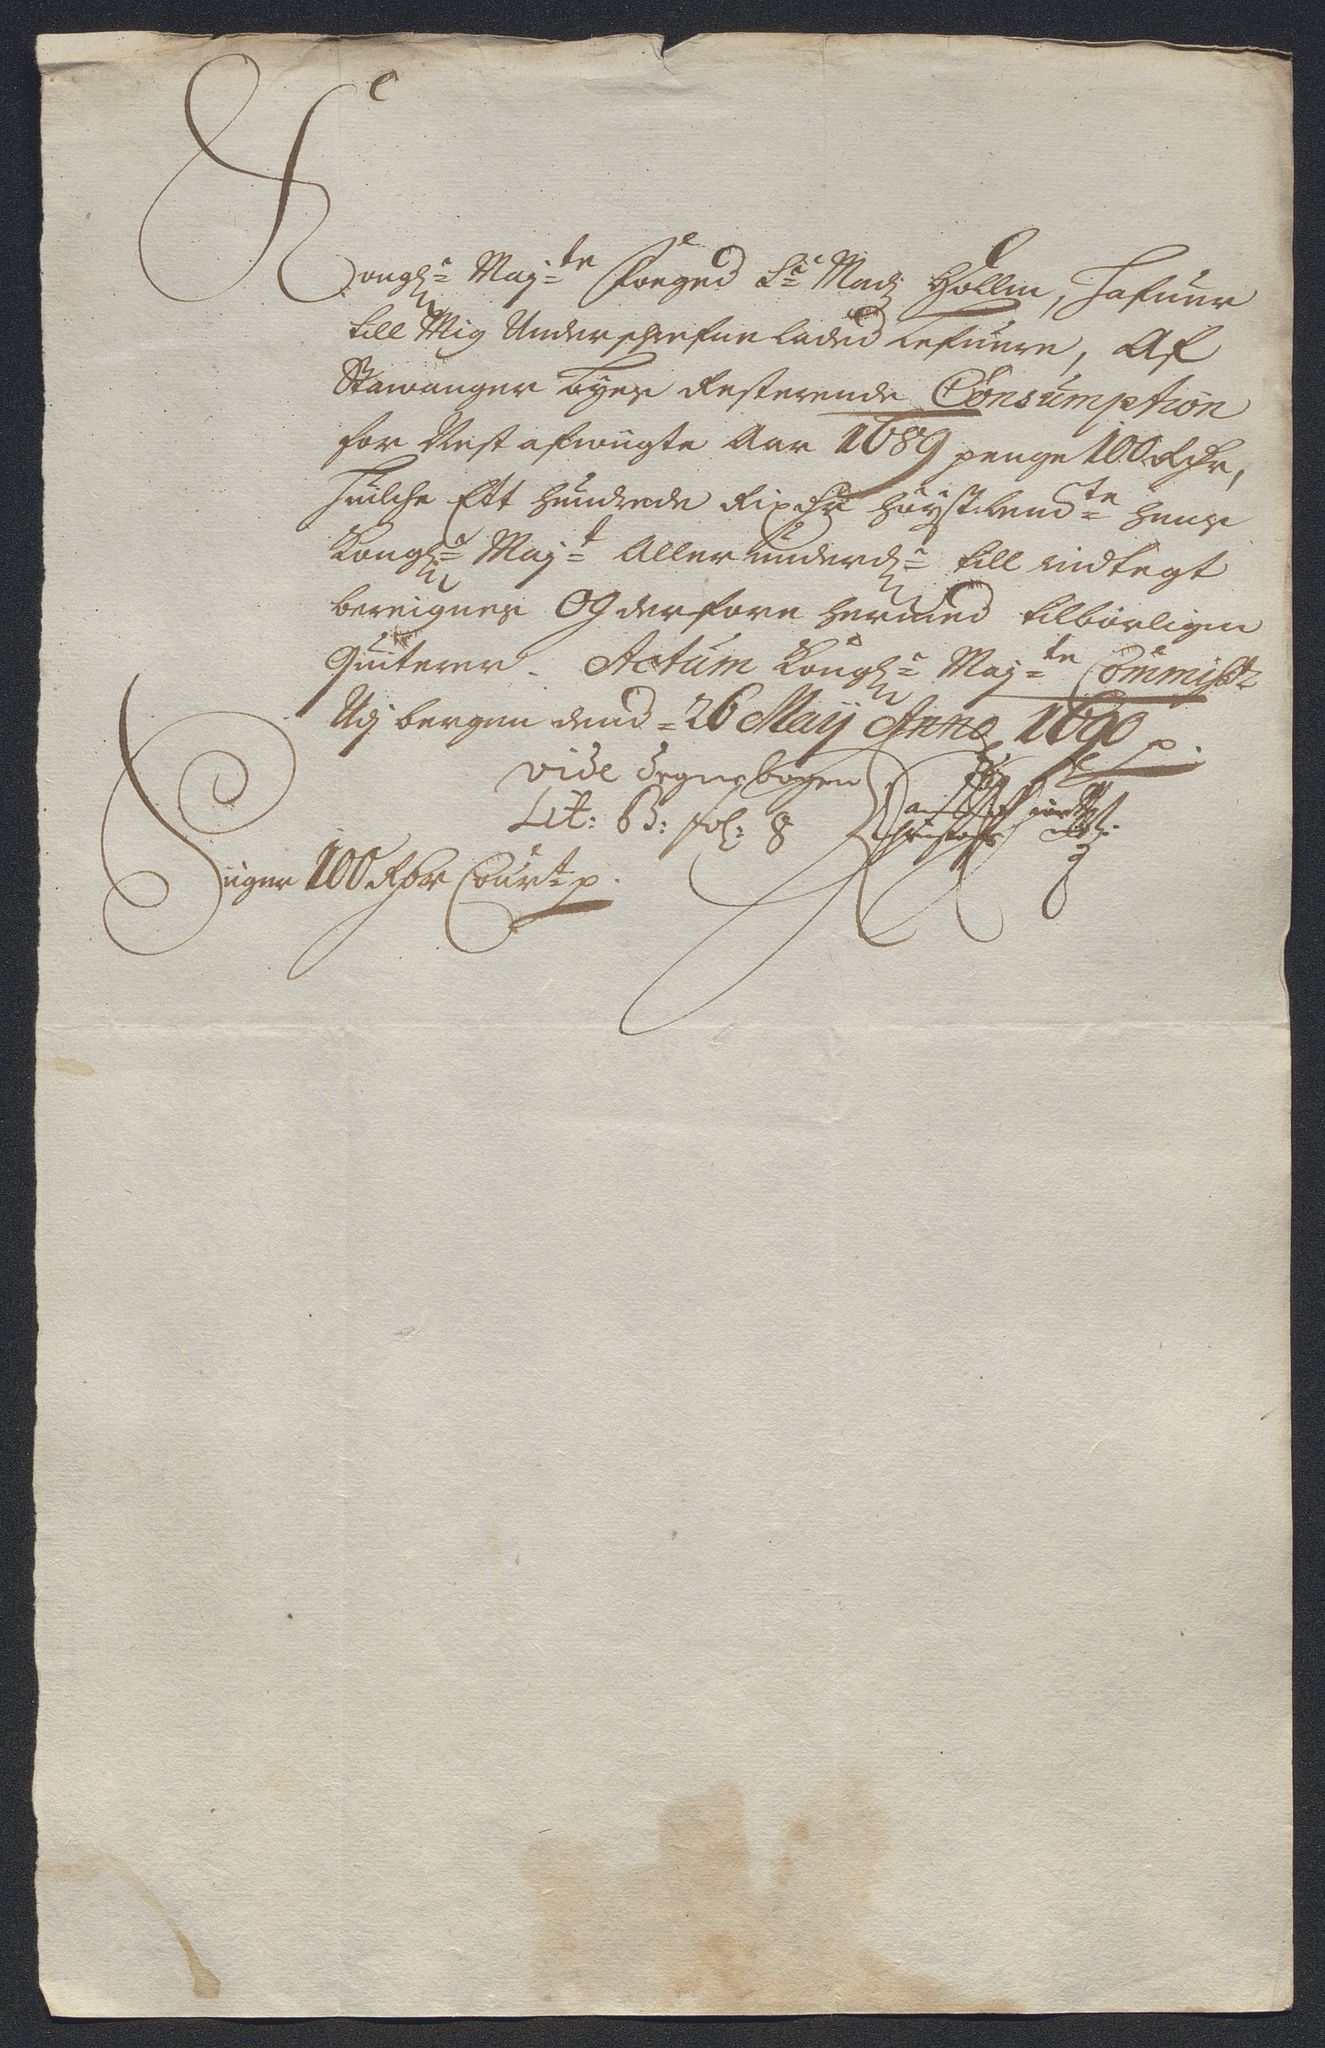 Kongl: Maj:te Foeged Sr Madz Hollm, hafuer
till Mig Underschrefne laded Lefuere, Af
Stawanger byes Resterende Consumption
for Nest afwigte Aar 1689 penge 100 Rdr,
huilche Ett Hundrede Rixdr høystbem:te Hans
Kongl: Maj:t Allerunderd: till indtegt
bereignes Og derfore hermed tilbørligen
quiterer. Actum Kongl: Maj:te Commiss:
Udj bergen dend 26 Maij Anno 1690 p.
vide Regnsbogen
Lit: B: fol: 8
Siger 100 Rdr Cour:t p.